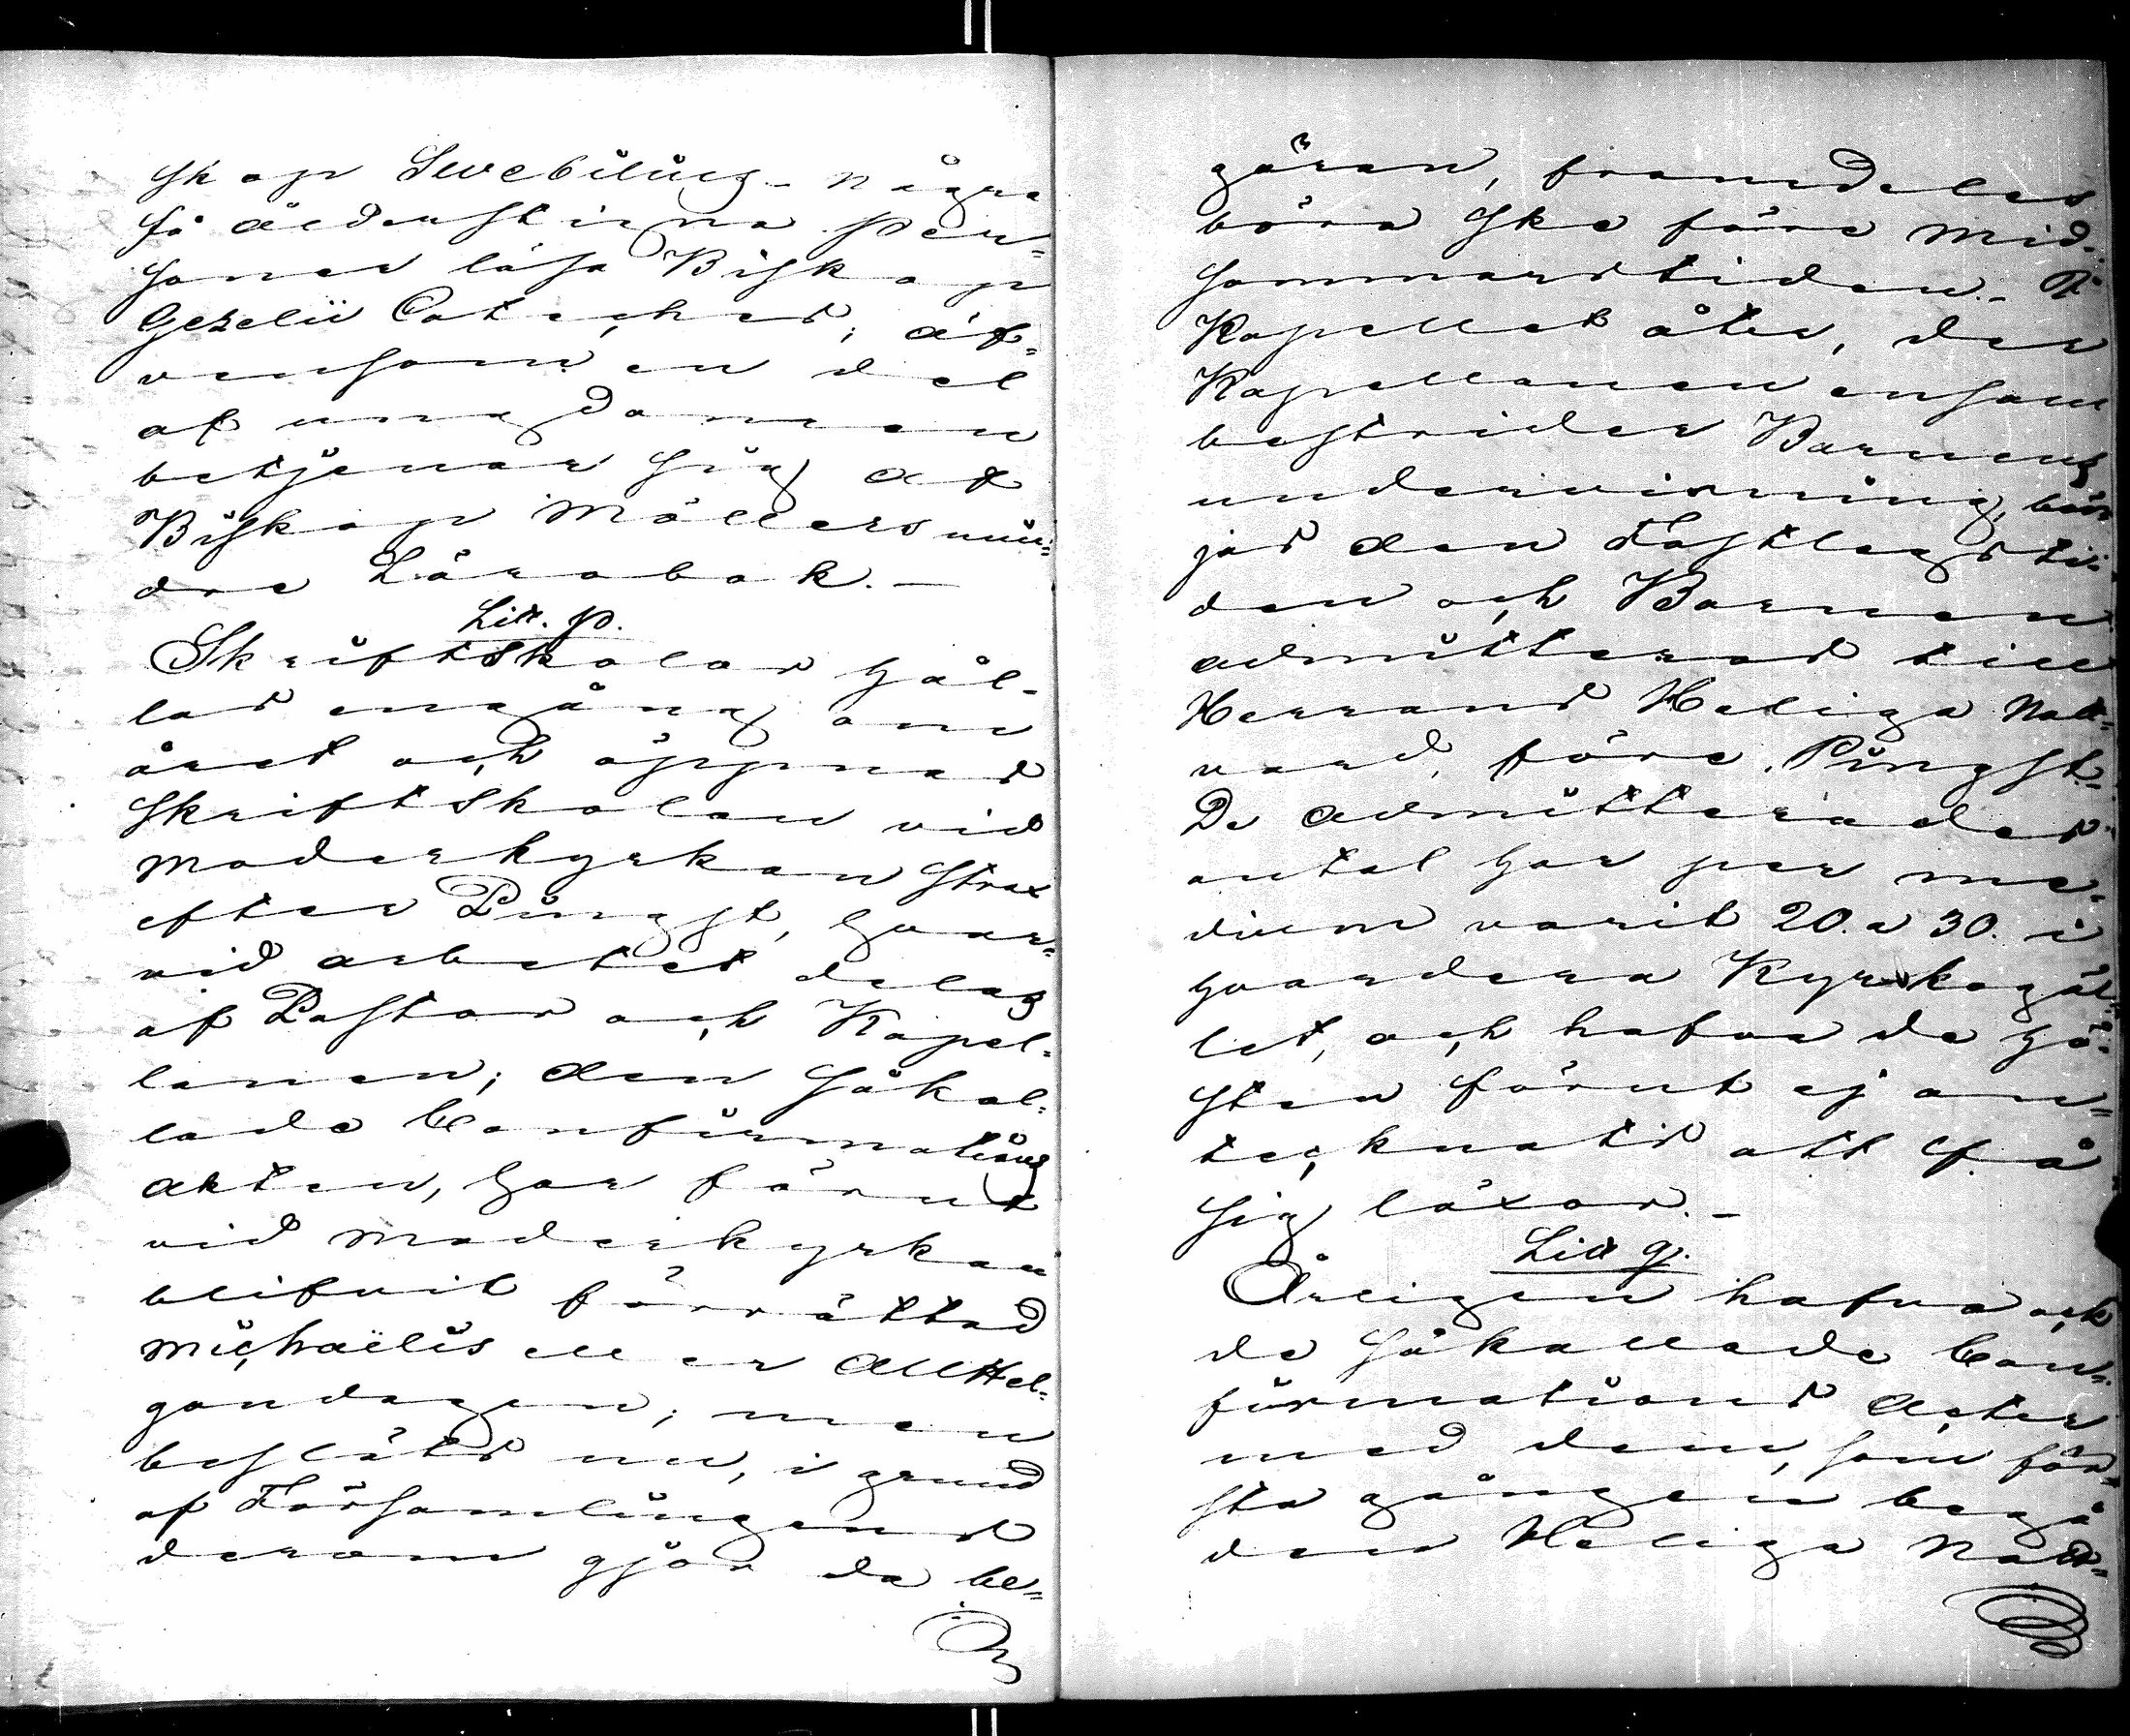 skop Swebilius - några
få ålderstigna per-
soner läsa Biskop
Gezelii Cateches; äf-
vensom en del
af ungdomen
betjenar sig af
Biskop Möllers min-
dre Lärobok. -
Litt. p.
Skriftskolor hål-
las engång om
året och öppnas
skriftskolan vid
moderkyrkan strax
efter Pingst, hvar-
vid arbetet delas
af Pastor och Kapel-
lanen; den såkal-
lade Confirmations
akten, har förut
vid moderkyrkan
blifvit förrättad
Michaëlis eller AllHel-
gondagen; men
beslöts nu, i grund
af Församlingens
derom gjorda be-
gäran, framdeles
böra ske före mid-
sommarstiden. - I
Kapellet åter, der
Kapellanen ensam
bestrider Barnens
undervisning, bör-
jas den Fastlagsti-
den och Barnen
admitteras till
Herrans Heliga Natt-
vard, före Pingst.
De admitterades
antal har per me-
dium varit 20. a 30. i
hvardera Kyrkogäl-
let, och hafva de hö-
sten förut ej an-
tecknats att få
sig läxor. -
Litt q.
Årligen hafva ock
de såkallade Con-
firmations Acter
med dem, som för-
sta gången begå
den Heliga Natt-